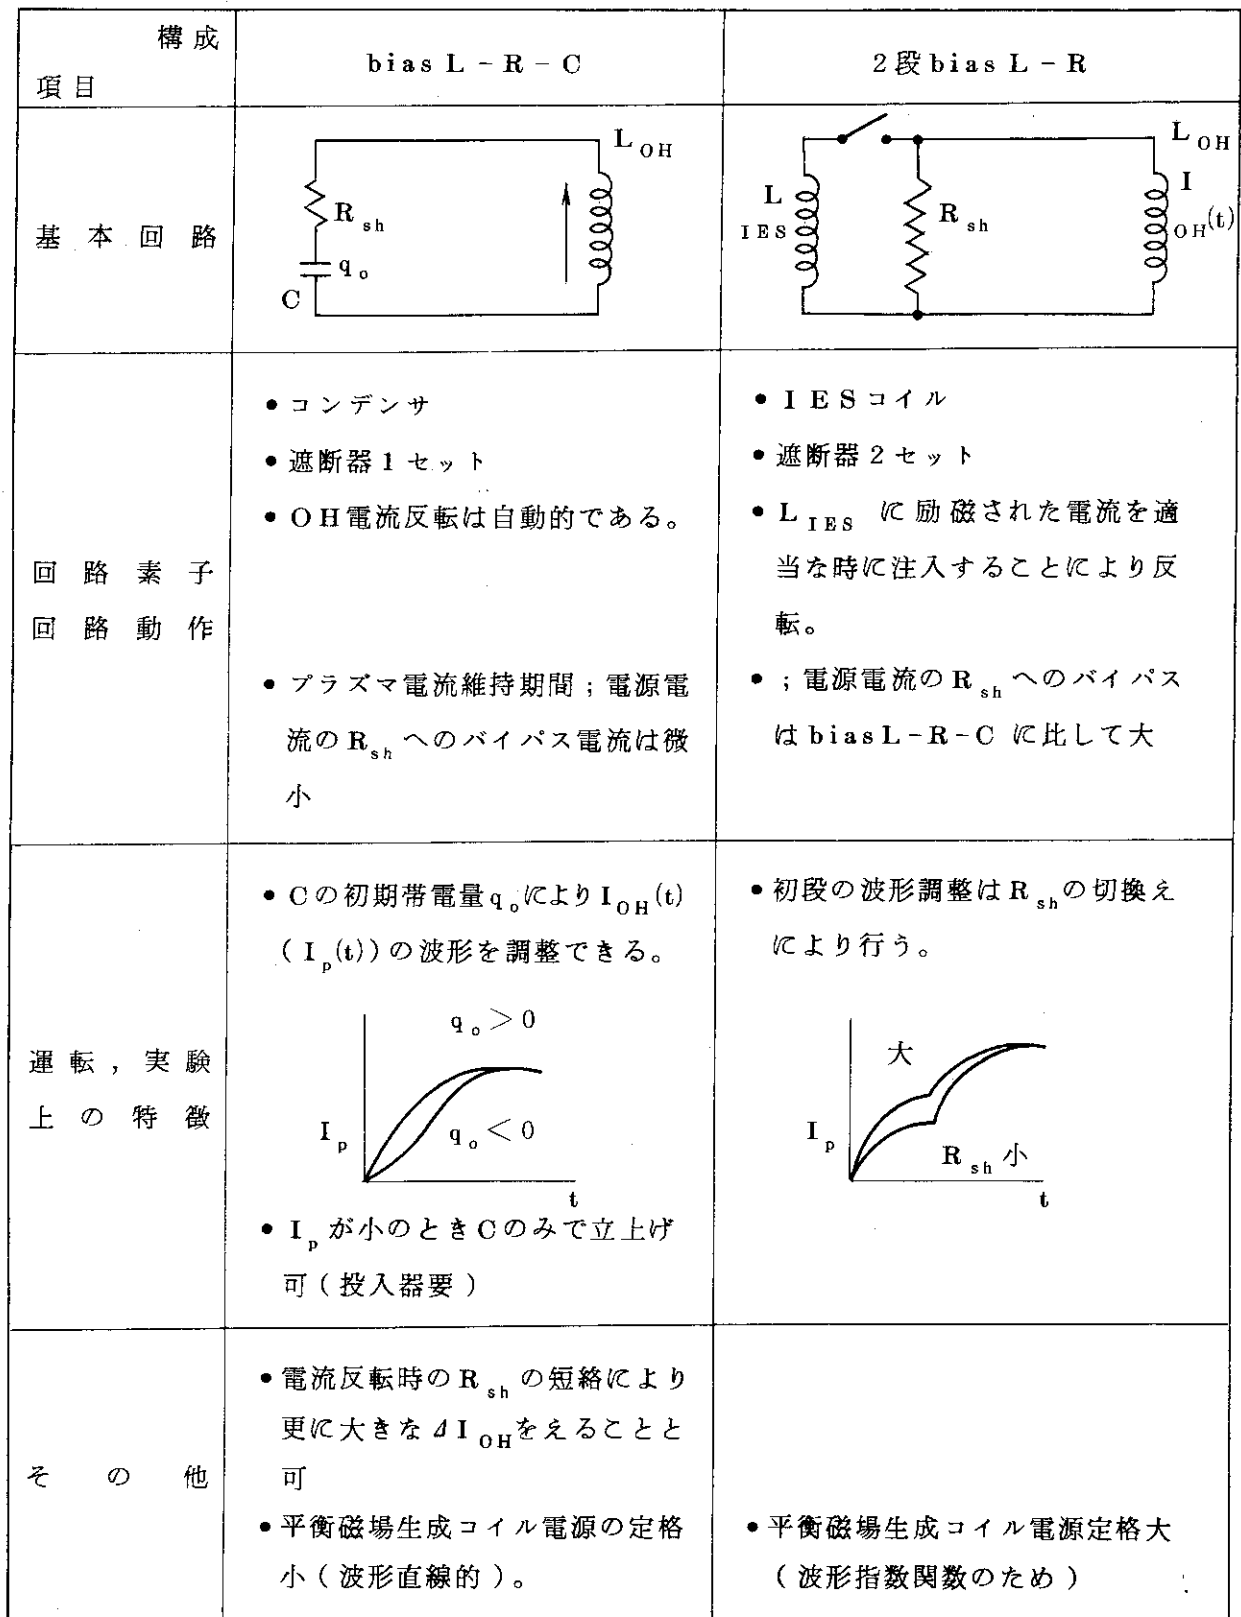 構成
項目
bias L－R－C
2段bias L－R
基本回路
L OH
R sh
q o
C
L IES
R sh
L OH
I OH(t)
回路素子
回路動作
•コンデンサ
•遮断器1セット
•OH電流反転は自動的である。
•プラズマ電流維持期間；電源電
流のR shへのバイパス電流は微
小
•IESコイル
•遮断器2セット
•L IES に励磁された電流を適
当な時に注入することにより反
転。
•；電源電流のR shへのバイパス
はbiasL－R－C に比して大
運転，実験
上の特徴
•Cの初期帯電量q oによりI OH(t)
（I p(t)）の波形を調整できる。
q o＞0
I p
q o＜0
t
•I pが小のときCのみで立上げ
可（投入器要）
•初段の波形調整はR shの切換え
により行う。
大
I p
R sh小
t
その他
•電流反転時のR shの短絡により
更に大きなΔI OHをえることと
可
•平衡磁場生成コイル電源の定格
小（波形直線的）。
•平衡磁場生成コイル電源定格大
（波形指数関数のため）